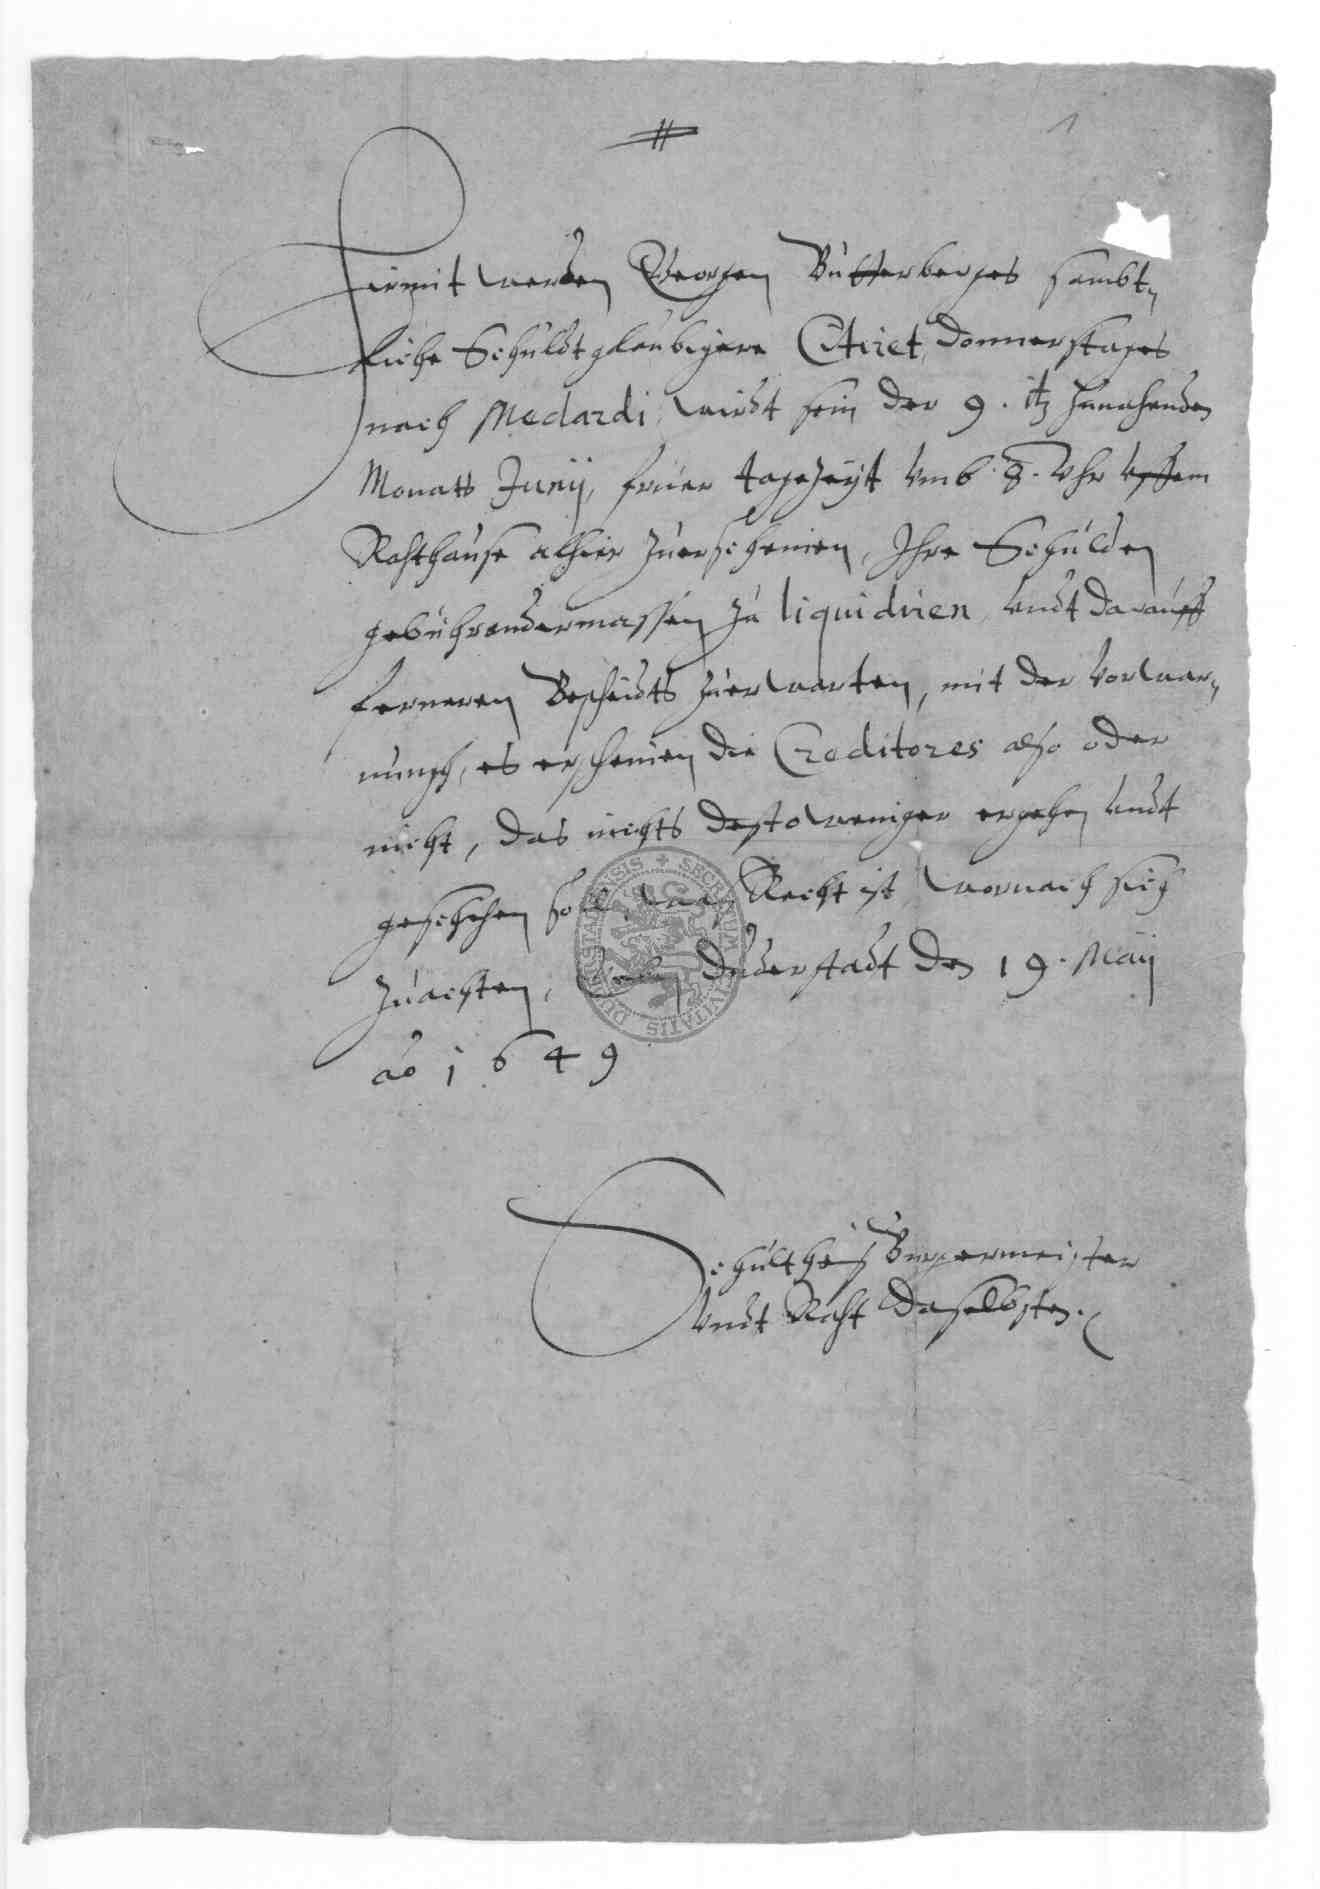 1
Hiermit werden Georgen Butterberges sambt„
liche Schuldtgläubigere Citiret, Donnerstages
nach Medardi, wirdt sein der 9. itz hernahenden
Monatts Junij, früer tagezeyt vmb .8. Vhr vffem
Rahthause alhier zuerscheinen, Ihre Schulden
gebührendermassen zu liquidiren, vndt darauff
ferneren Bescheidts zuerwarten, mit der vorwar„
nungh, es erscheinen die Creditores also oder
nicht, das nichts destoweniger ergehen vndt
geschehen soll, was Recht ist, wornach sich
zuachten, Duderstadt den 19. Maij
ao 1649
Schultheiß Burgermeister
vndt Raht daselbsten.
SECRETUM CIVITATIS DUDERSTADENSIS